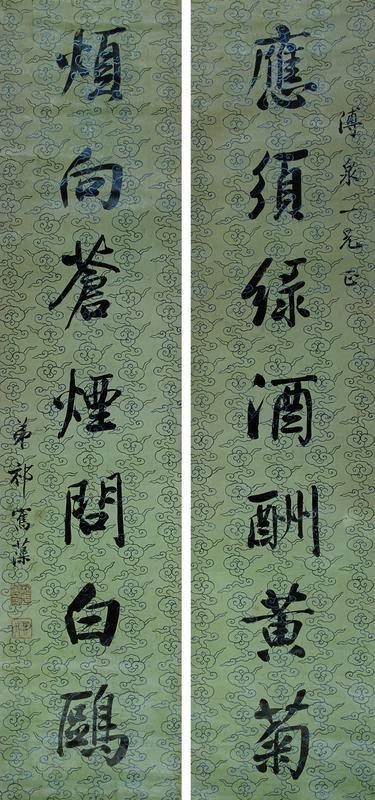 溥泉一兄正
應須綠酒酬黃菊
煩向蒼煙問白鷗
弟祁寯藻